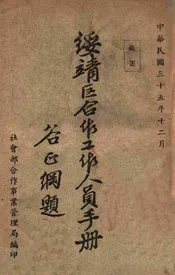 中華民國三十五年十二月
綏靖區合作工作人員手册
谷正綱題
社會部合作事業管理局編印